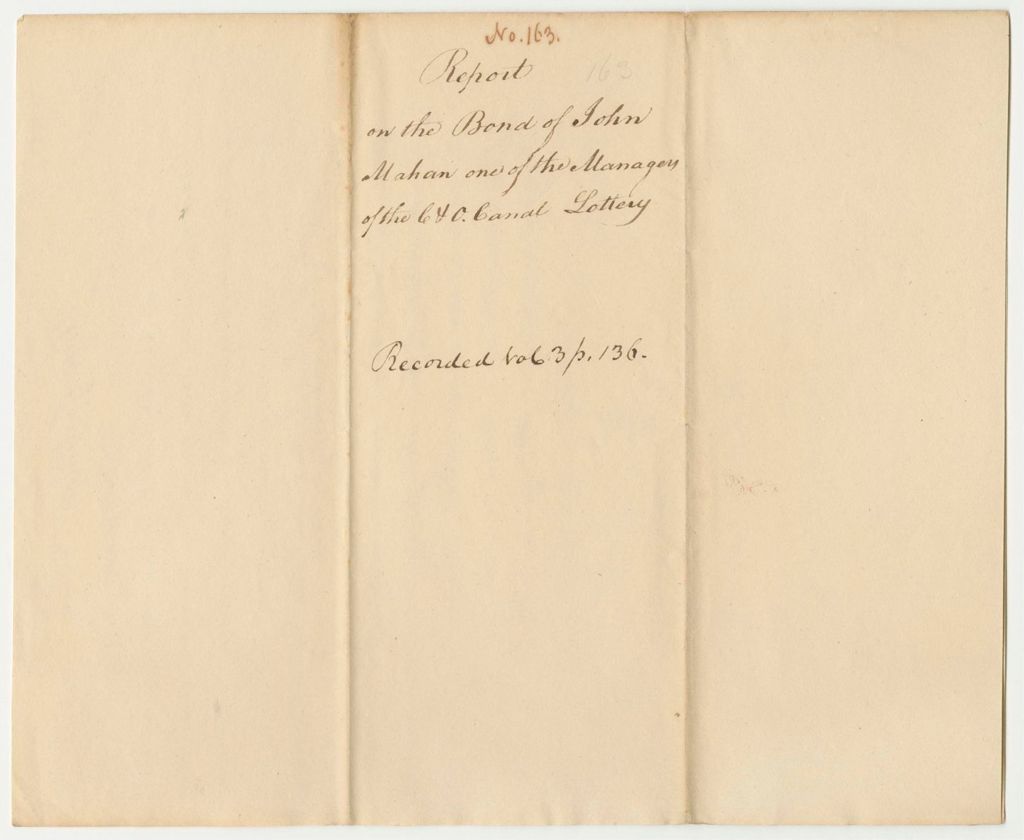 No. 163.
Report 163
on the Bond of John
Mahan one of the Managers
of the C & O. Canal Lottery
Recorded Vol 3 p. 136.